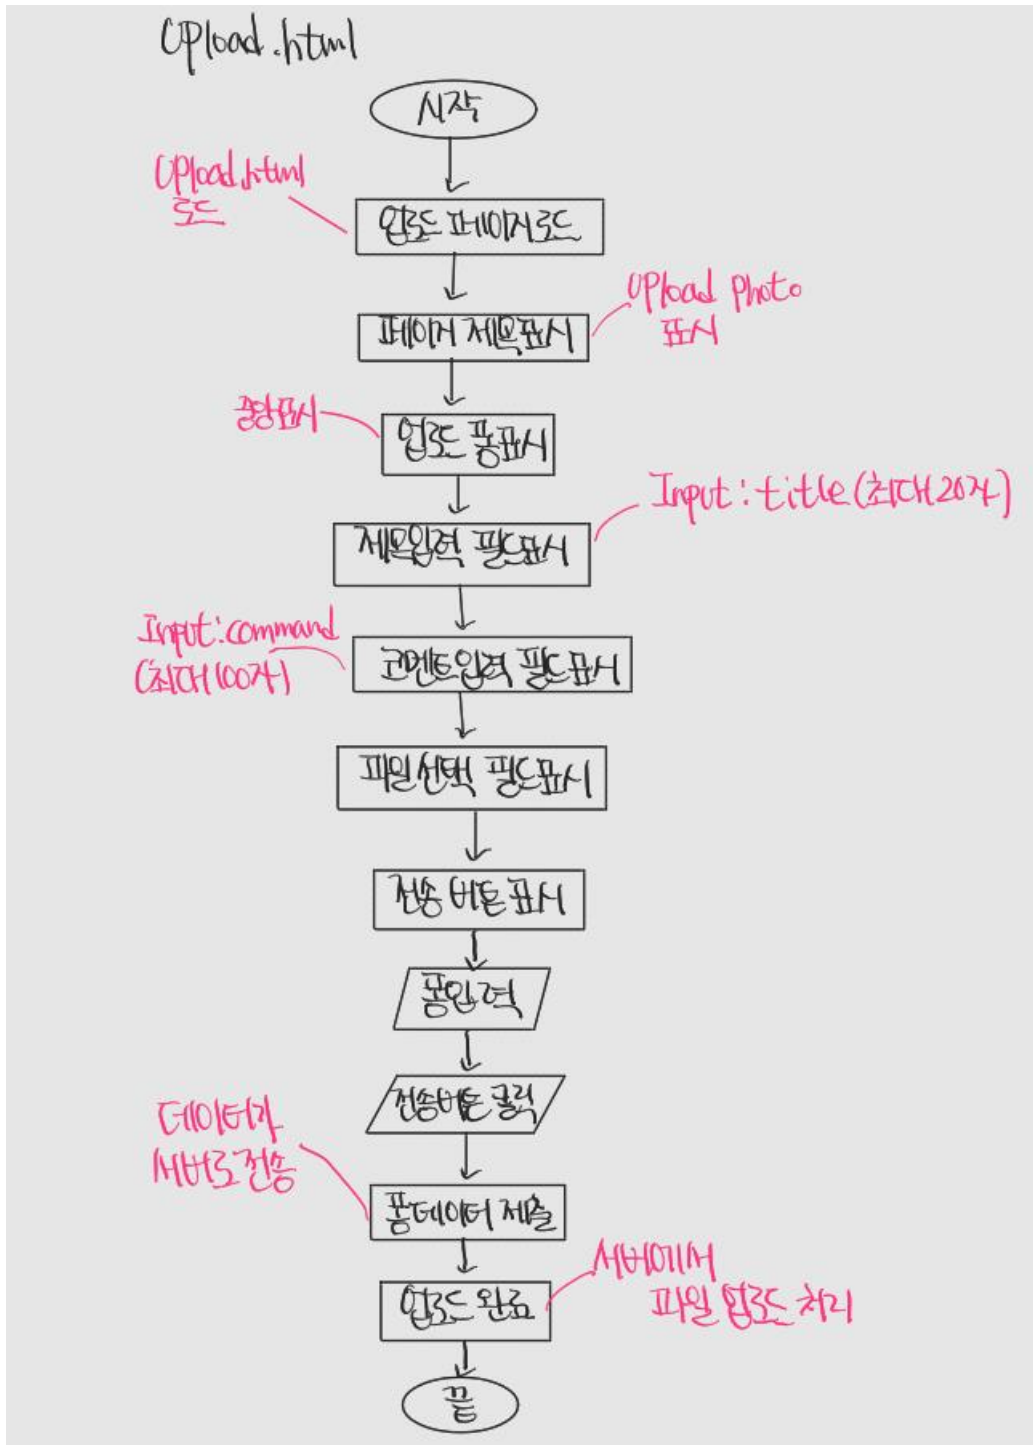 Upload.html
시작
Upload.html
로드
업로드 페이지 로드
페이지 제목표시
Upload Photo
표시
중앙표시
업로드 폼표시
Input : title (최대 20자)
제목입력 필드표시
Input : command
(최대 100자)
코멘트입력 필드표시
파일선택 필드표시
전송 버튼 표시
폼입력
전송버튼 클릭
데이터가
서버로 전송
폼데이터 제출
서버에서
파일 업로드 처리
업로드 완료
끝